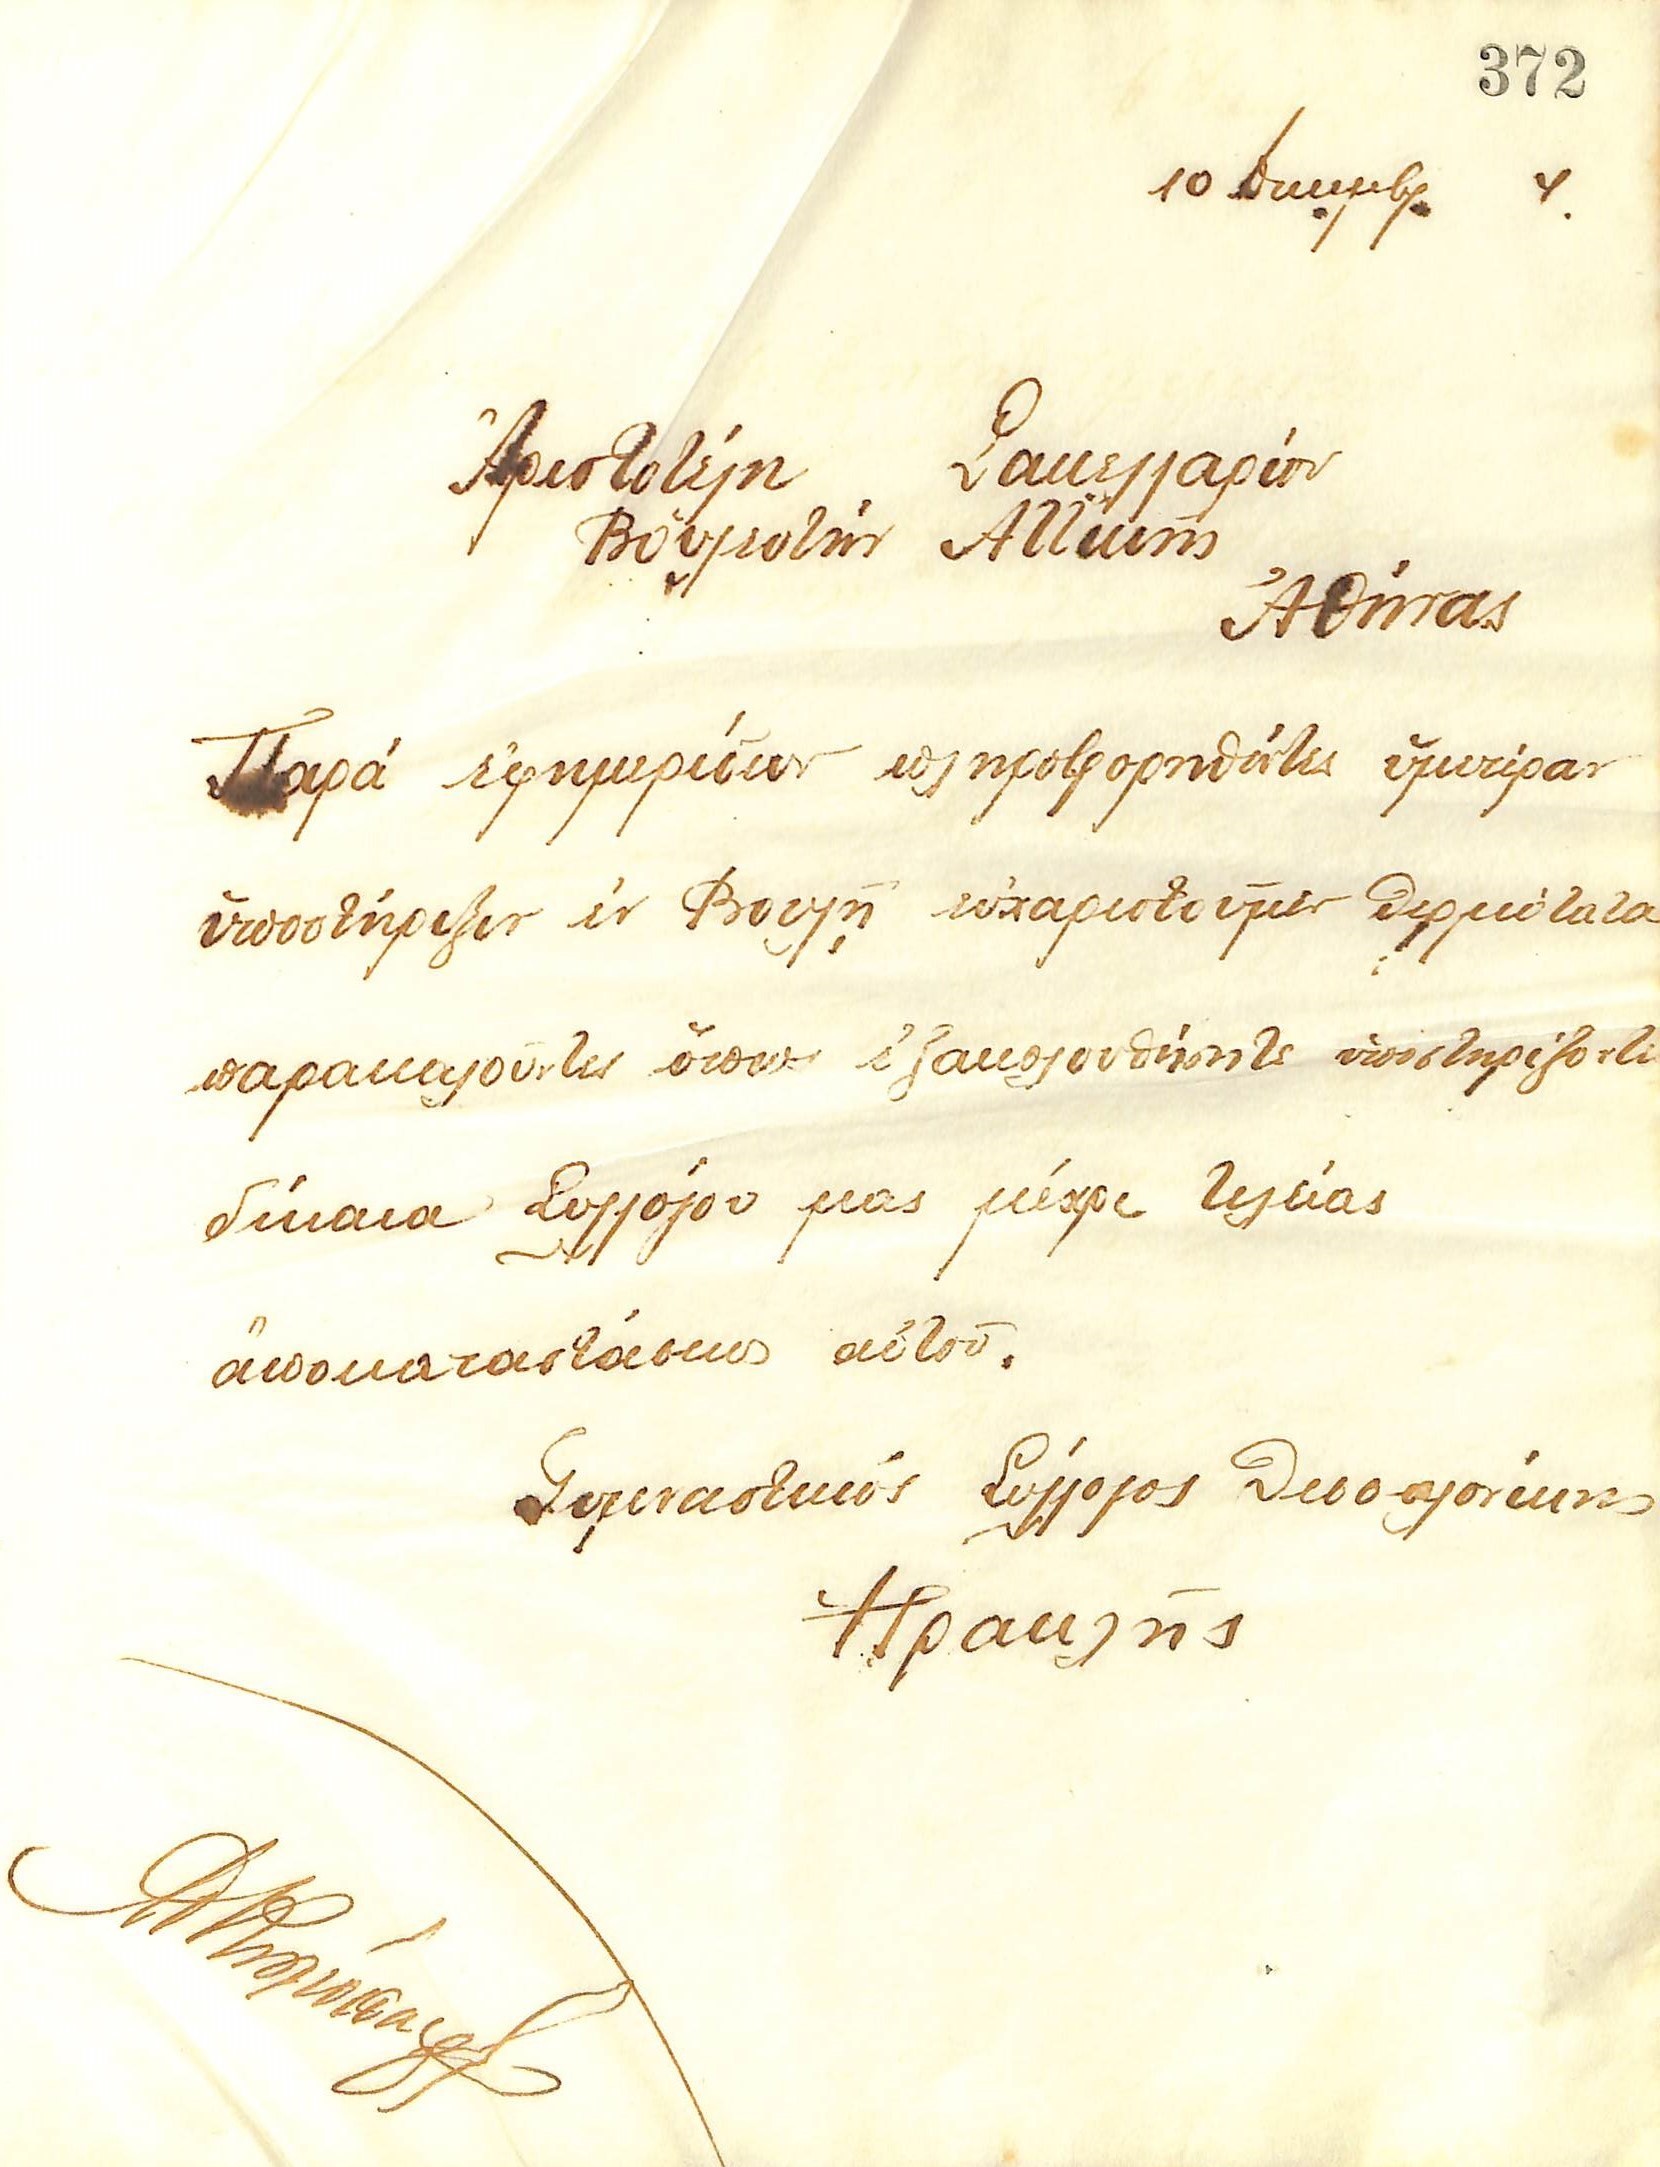 372
10 Δεκεμβρ. 4.
Ἀριστοτέλη Σακελλαρίου
Βουλευτὴν Ἀττικῆς
Ἀθήνας
Παρά ἐφημερίδων πληροφορηθέντες ὑμετέραν
ὑποστήριξιν ἐν Βουλῇ εὐχαριστοῦμεν θερμότατα
παρακαλοῦντες ὅπως ἐξακολουθήσητε ὑποστηρίζοντες
δίκαια Συλλόγου μας μέχρι τελείας
ἀποκαταστάσεως αὐτοῦ.
Γυμναστικός Σύλλογος Θεσσαλονίκης
Ηρακλῆς